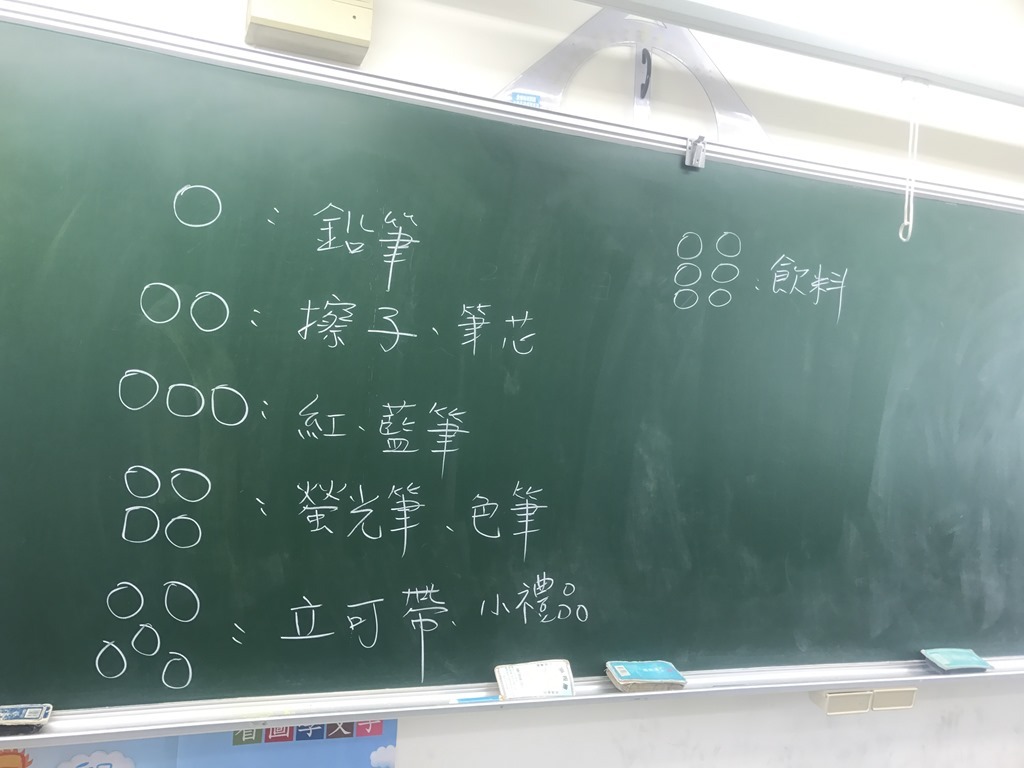 ：鉛筆
：擦子、筆芯
：紅、藍筆
：螢光筆、色筆
：立可帶、小禮品
：飲料
看圖學文字